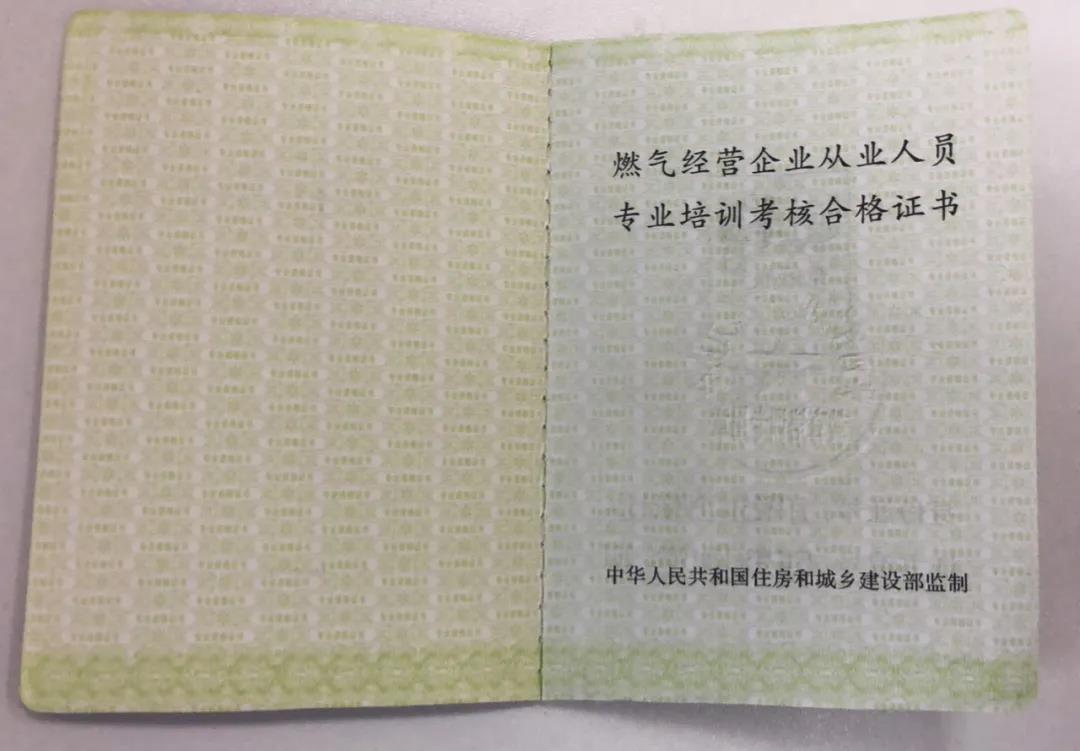 燃气经营企业从业人员
专业培训考核合格证书
中华人民共和国住房和城乡建设部监制